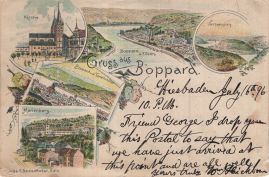 Kirche
Gruss aus
Boppard.
Marienberg
Wiesbaden July 16th 96
10. P.M.
Friend George I drop you
this Postal to say that
we have just arrived at
this point and are all well
yours truly